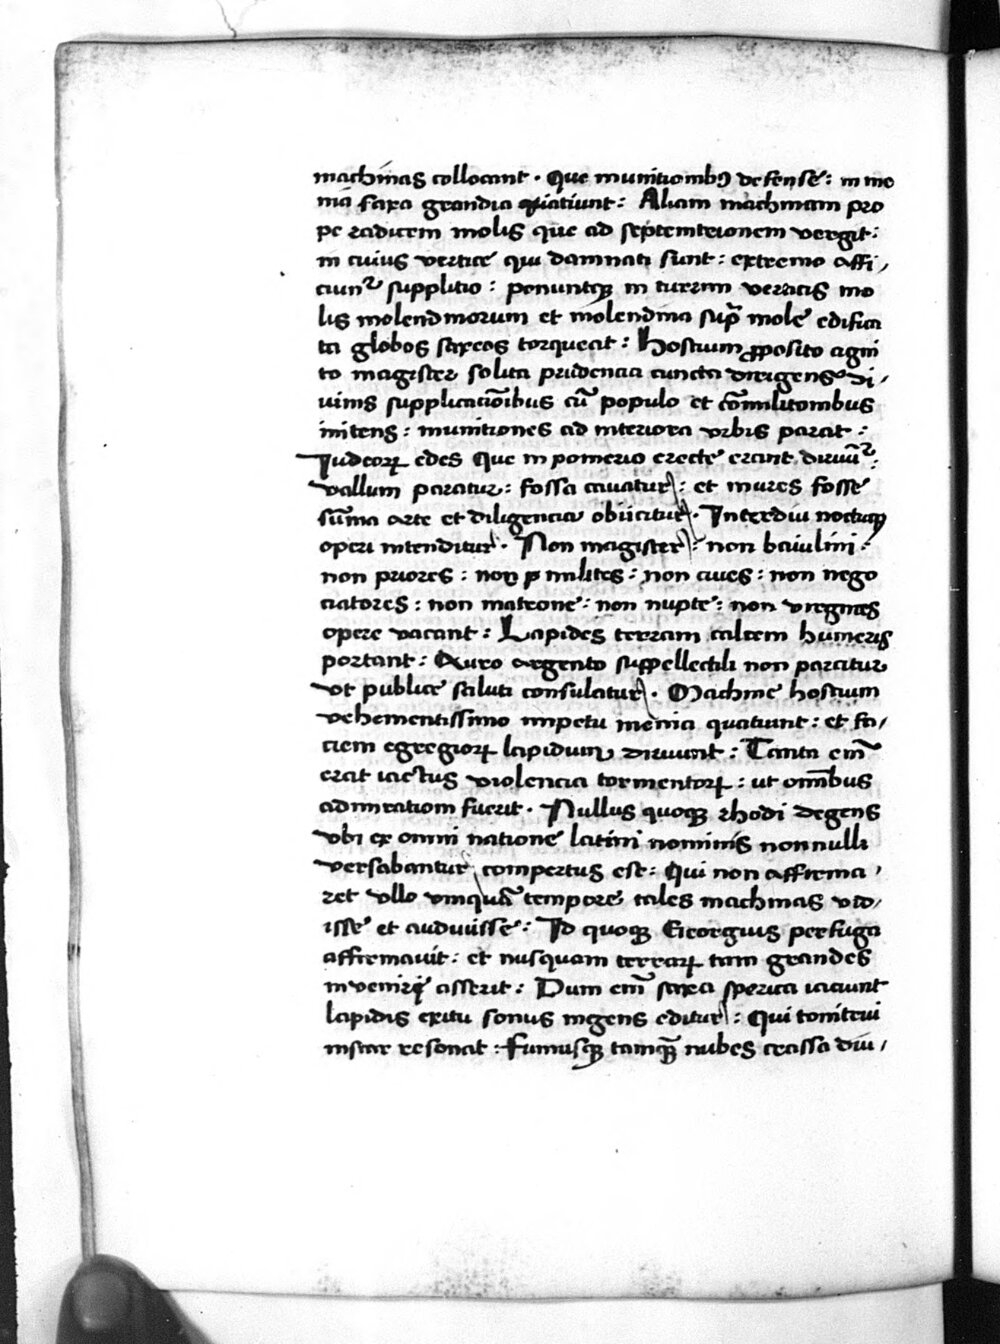 machinas collocant · Que munitionibꝰ defense : in me
nia saxa grandia quatiunt : Aliam machinam pro
pe radicem molis que ad septemtrionem vergit :
in cuius vertice qui damnati sunt : extremo affi/
ciunt᷑ supplitio : ponuntqꝫ in turrim verticis mo
lis molendinorum et molendina sup̄ mole edifica
ta globos saxeos torqueat : Hostium ꝓposito agni
to magister solita prudencia cuncta dirigens di/
uinis supplicaciōibus cū populo et cōmilitonibus
initens : munitiones ad interiora vrbis parat :
Judeoꝝ edes que in pomerio erecte erant diruūt᷑ :
vallum paratur : fossa cauatur : et mures fosse
sūma arte et diligencia obiicitur · Interdiu noctuqꝫ
operi intenditur · Non magister : non baiulini :
non priores : non milites : non ciues : non nego
ciatores : non matrone : non nupte : non virgines
opere vacant : Lapides terram calcem humeris
portant : Auro argento suppellectili non parcitur
vt publice saluti consulatur · Machine hostium
vehementissimo impetu menia quatiunt : et fa/
ciem egregioꝝ lapidum diruunt : Tanta em̄
erat iactus violencia tormentoꝝ : ut om̄ibus
admirationi fuerit · Nullus quoqꝫ rhodi degens
vbi ex omni natione latini nominis nonnulli
versabantur compertus est : Qui non affirma/
ret vllo vmquā tempore tales machinas vid/
isse et audiuisse : Id quoqꝫ Georgius perfuga
affirmauit : et nusquam terraꝝ tam grandes
inveniri asserit : Dum em̄ saxa sperica iaciunt
lapidis exitu sonus ingens editur : Qui tonitrui
instar resonat : Fumusqꝫ tamqꝫ̄ nubes crassa diu/